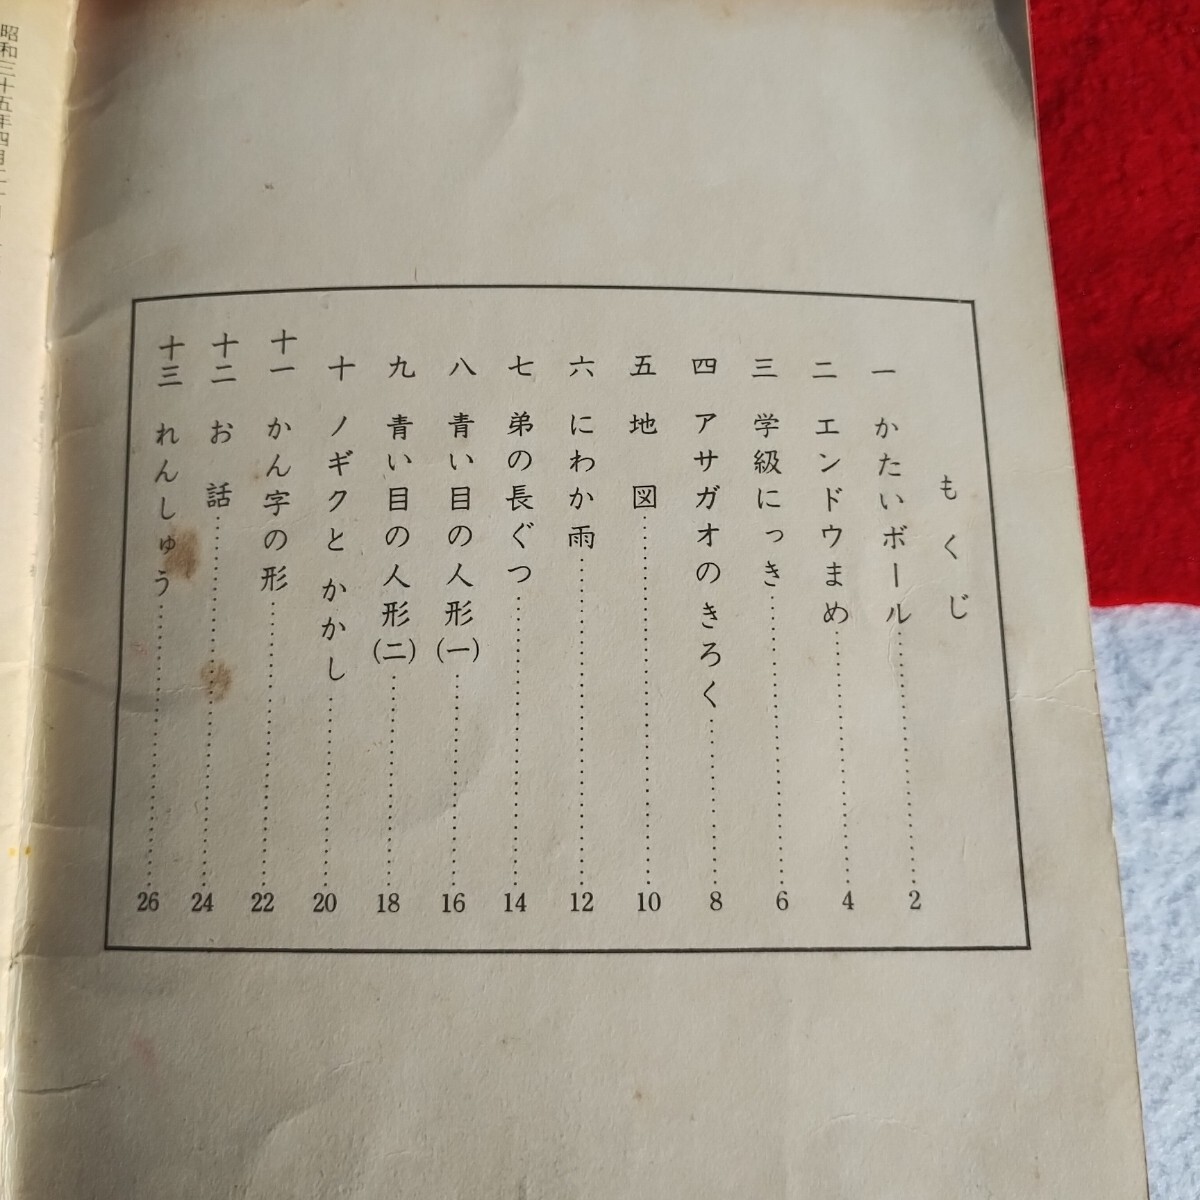 もくじ
一 かたいボール……2
二 エンドウまめ……4
三 学級にっき……6
四 アサガオのきろく……8
五 地図……10
六 にわか雨……12
七 弟の長ぐつ……14
八 青い目の人形(一)……16
九 青い目の人形(二)……18
十 ノギクとかかし……20
十一 かん字の形……22
十二 お話……24
十三 れんしゅう……26
昭和三十五年四月二十